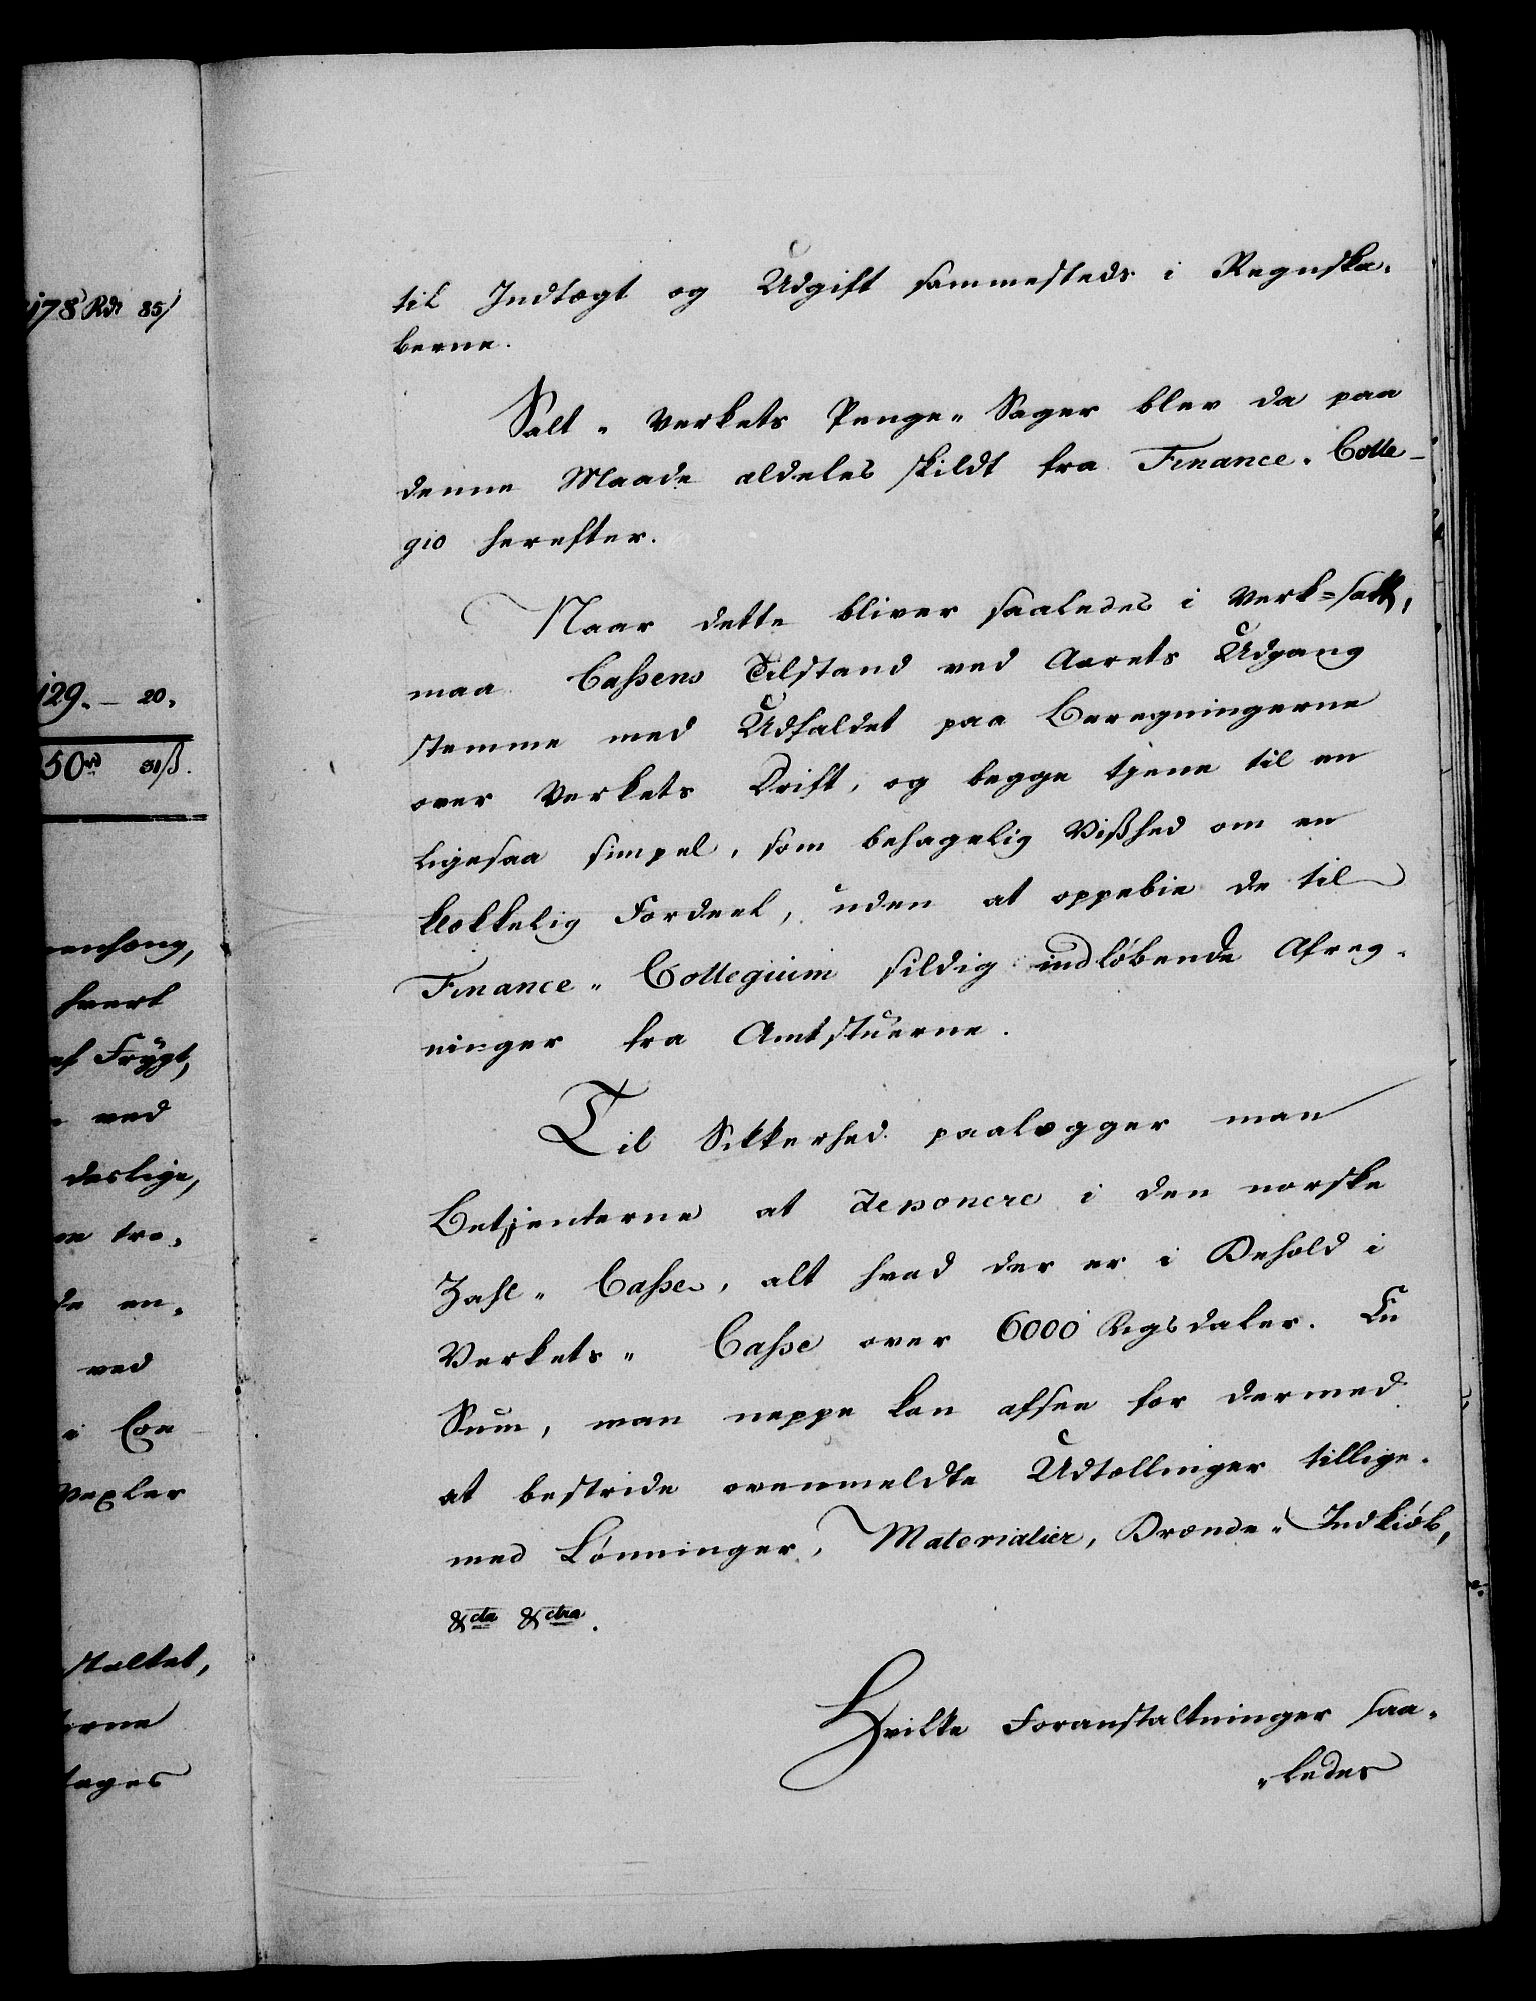 178 Rdr 85/
129. – 20.
50 rd 31 ß.
hvert
af Frygt,
ved
deslige,
tro.
en.
ved
i Con
Vexler
staltet,
erne
tages
til Indtægt og Udgift sammesteds i Regnska.
berne.
Salt. Verkets Penge. Sager blev da paa
denne Maade aldeles skildt fra Finance. Colle-
gio herefter.
Naar dette bliver saaledes i Verk=satt,
maa Cassens Tilstand ved Aarets Udgang
stemme med Udfaldet paa Beregningerne
over Verkets Drift, og begge tjene til en
ligesaa simpel, som behagelig Vißhed om en
klækkelig Fordeel, uden at oppebie de til
Finance. Collegium sildig indløbende Afreg.
ninger fra Amtstuerne.
Til Sikkerhed paalægger man
Betjenterne at deponere i den norske
Zahl. Casse, alt hvad der er i Behold i
Verkets. Casse over 6000 Rigsdaler. En
Sum, man neppe kan afsee for dermed
at bestride ovenmeldte Udtællinger tillige.
med Lønninger, Materialier, Brænde. Indkiøb,
&cta &ctra.
Hvilke Foranstaltninger saa.
„ledes